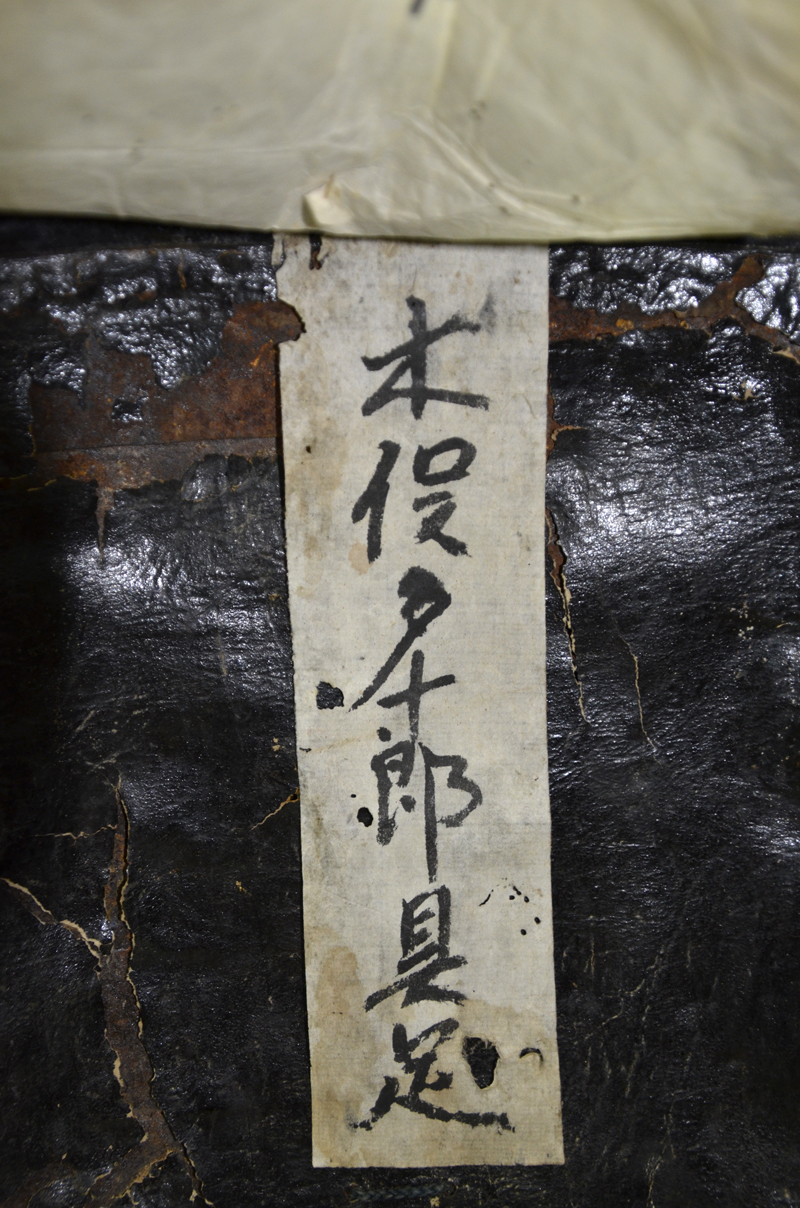 木俣多十郎具足